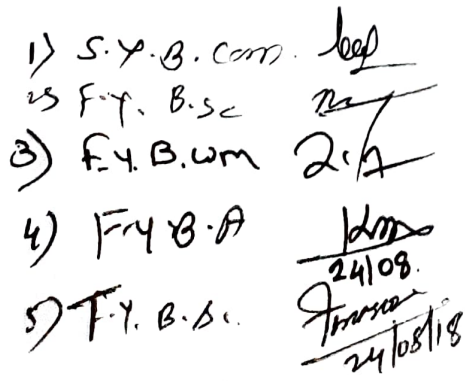 1) S.Y.B. Com.
2) F.Y. B.Sc
3) F.Y. B.Com
4) F.Y B.A
24/08.
5) T.Y. B.Sc.
24/08/18